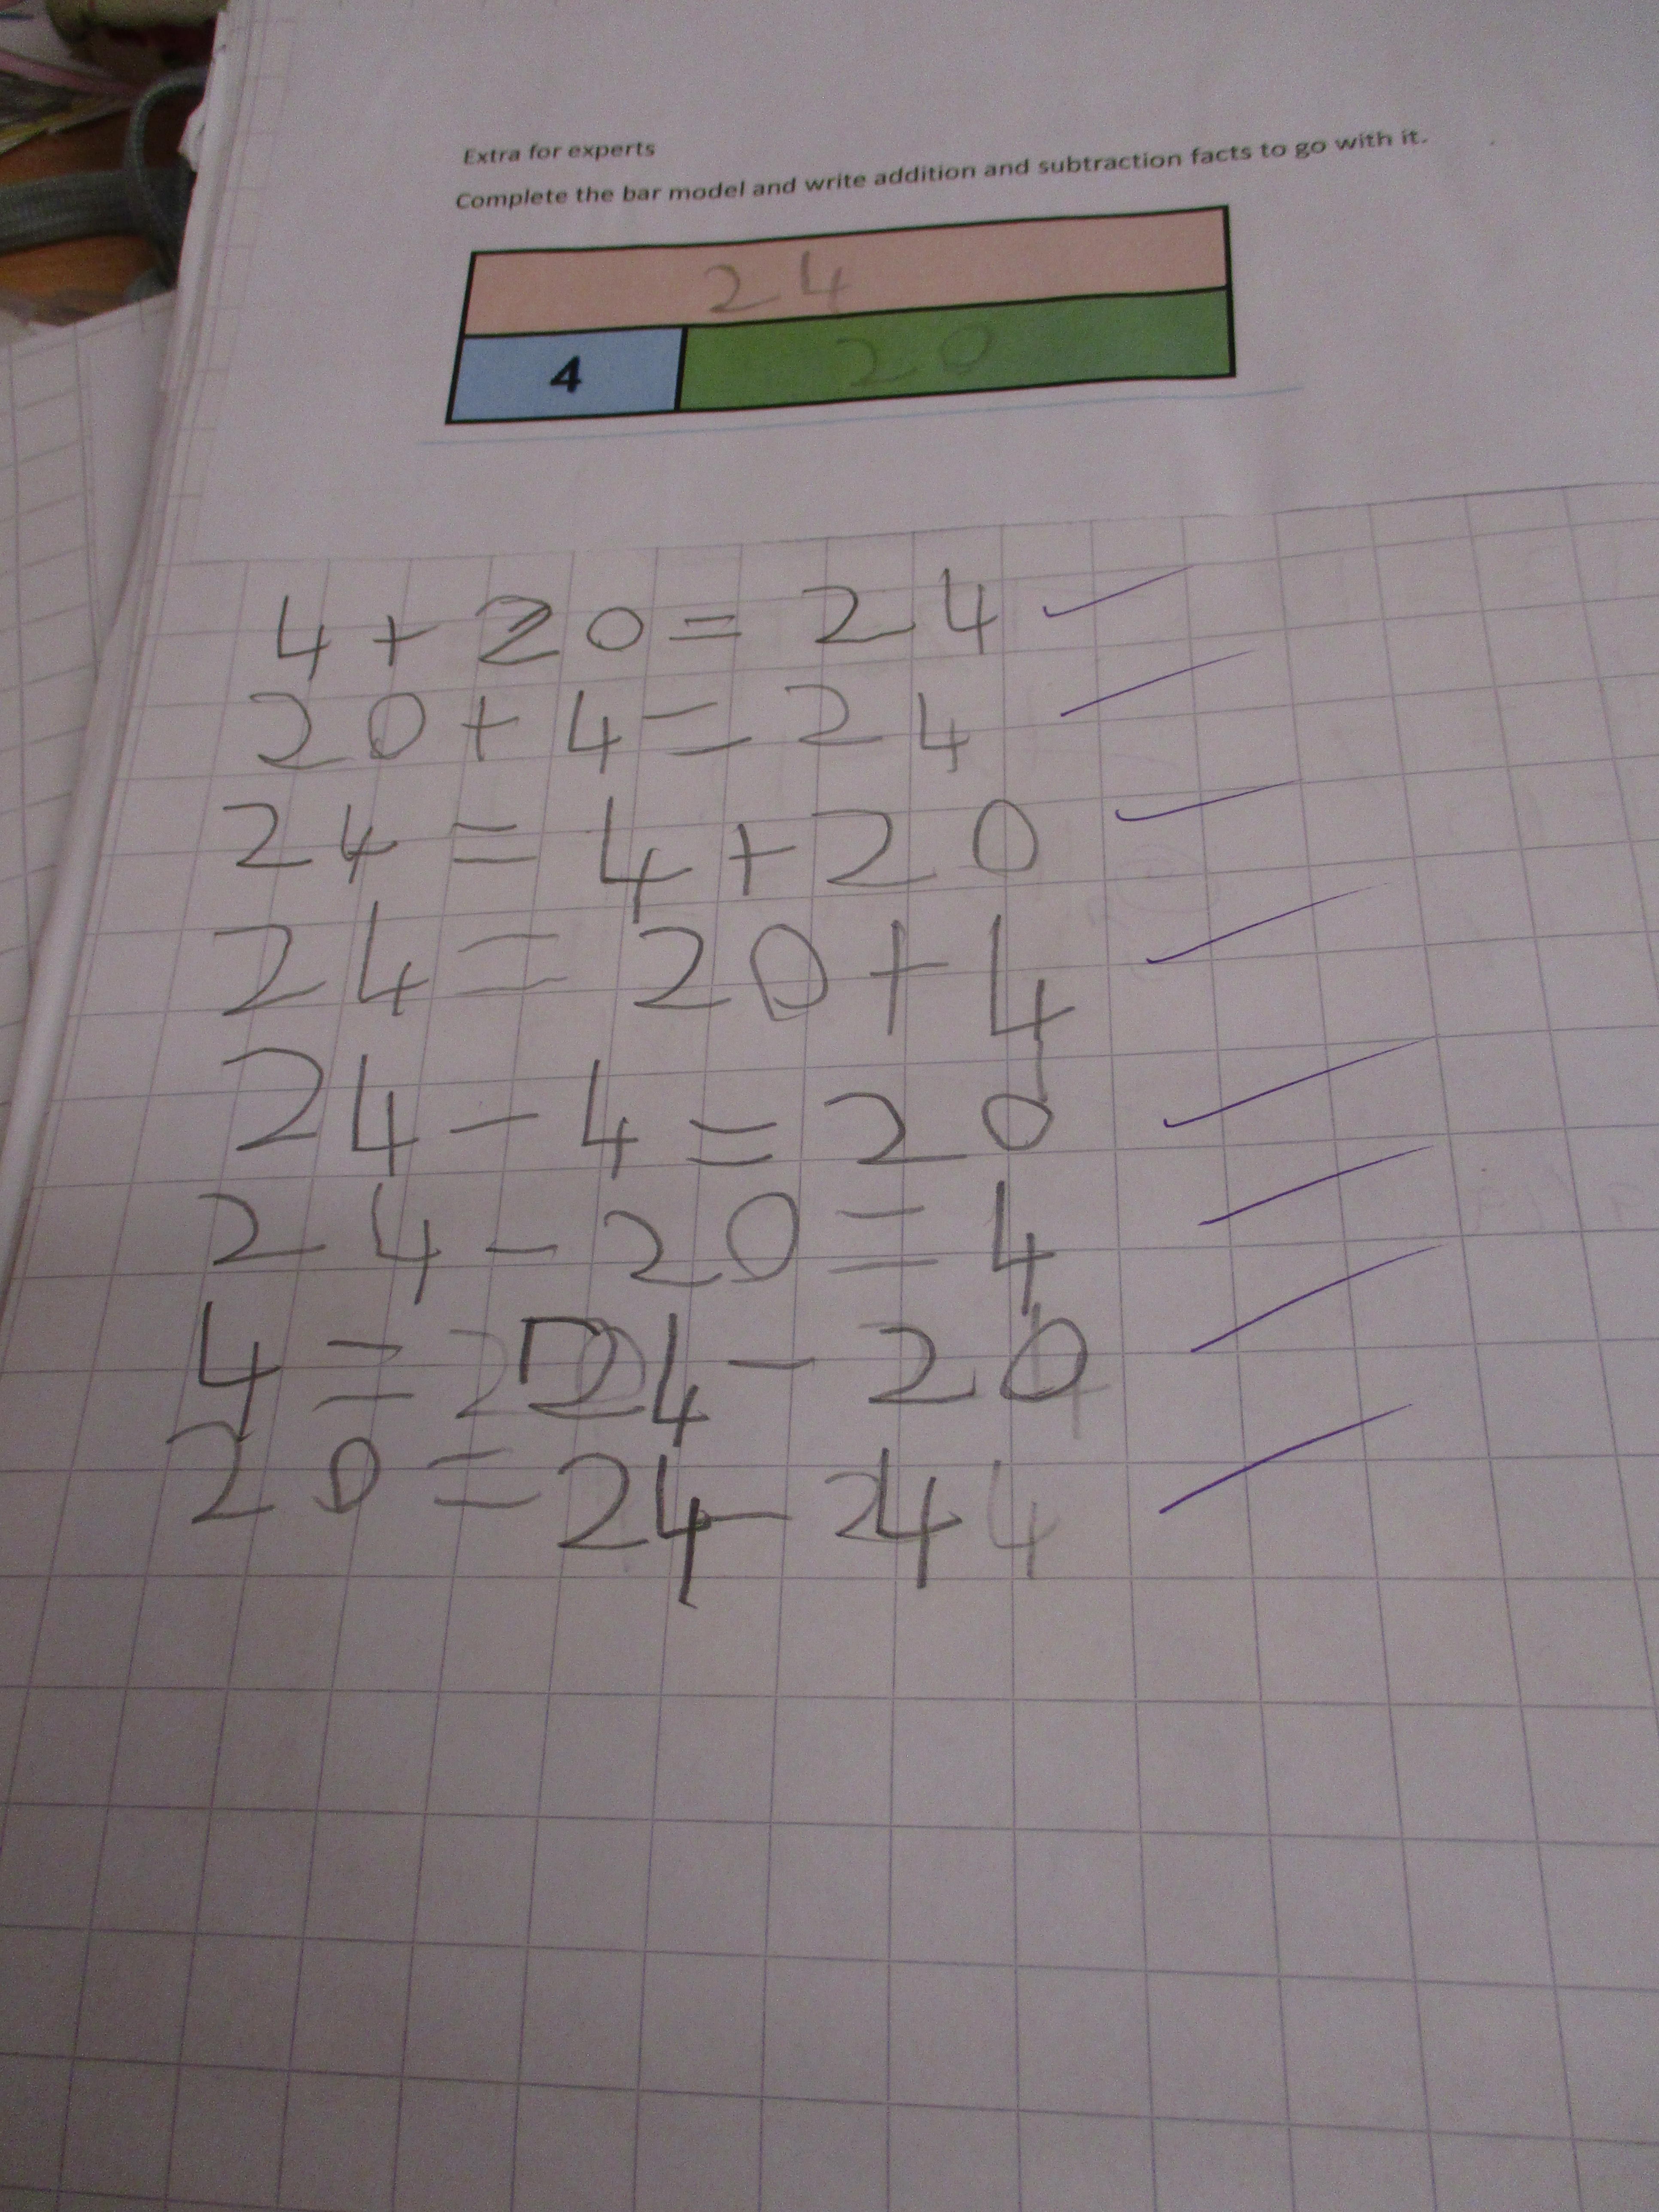 Extra for experts
Complete the bar model and write addition and subtraction facts to go with it.
24
4 20
4 + 20 = 24
20 + 4 = 24
24 = 4 + 20
24 = 20 + 4
24 - 4 = 20
24 - 20 = 4
4 = 24 - 20
20 = 24 - 4